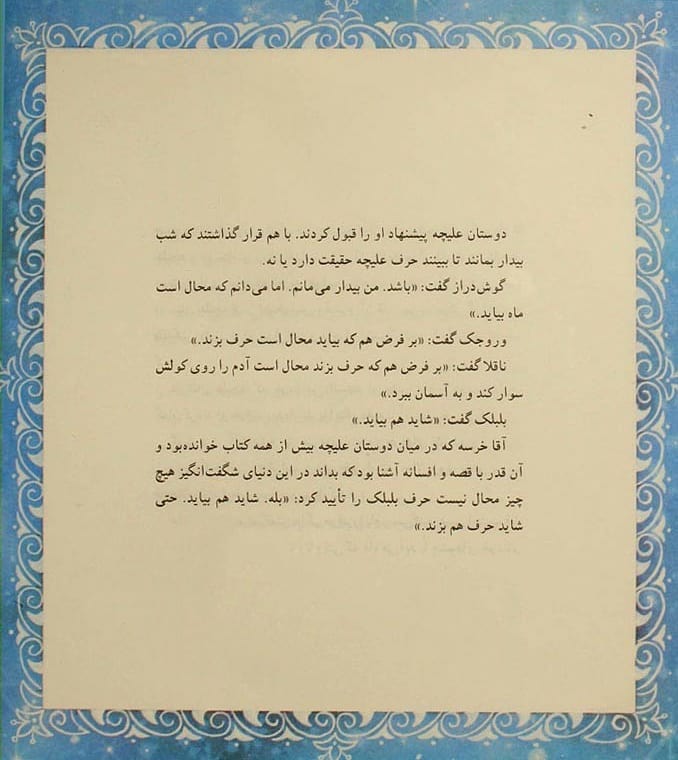 دوستان علیچه پیشنهاد او را قبول کردند. با هم قرار گذاشتند که شب
بیدار بمانند تا ببینند حرف علیچه حقیقت دارد یا نه.
گوش‌دراز گفت: «باشد. من بیدار می‌مانم. اما می‌دانم که محال است
ماه بیاید.»
وروجک گفت: «بر فرض هم که بیاید محال است حرف بزند.»
ناقلا گفت: «بر فرض هم که حرف بزند محال است آدم را روی کولش
سوار کند و به آسمان ببرد.»
بلبلک گفت: «شاید هم بیاید.»
آقا خرسه که در میان دوستان علیچه بیش از همه کتاب خوانده‌بود و
آن قدر با قصه و افسانه آشنا بود که بداند در این دنیای شگفت‌انگیز هیچ
چیز محال نیست حرف بلبلک را تأیید کرد: «بله. شاید هم بیاید. حتی
شاید حرف هم بزند.»